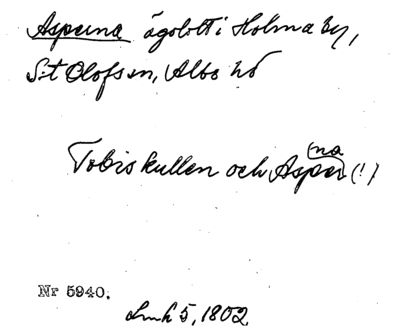 Asparna ägolott i Holma by,
S:t Olofs sn, Albo hd
Tobis kullen och Asparna (!)
Nr 5940.
Lmh 5, 1802